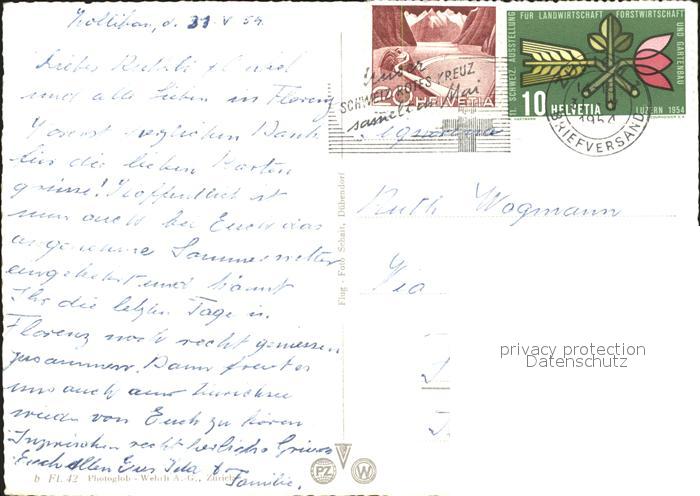 Zollikon, d. 31. V 54.
Liebes Ruthli
und alle Lieben in Florenz
Vorerst herzlichen Dank
für die lieben Karten
grüsse! Hoffentlich ist
nun auch bei Euch das
angenehme Sommerwetter
eingekehrt und könnt
Ihr die letzten Tage in
Florenz noch recht geniessen
zusammen. Dann freut es
uns auch
wieder von Euch zu hören.
Inzwischen recht herzliche Grüsse
Euch allen Eure Ida &
Familie.
b Fl. 42 Photoglob - Wehrli A. G., Zürich
Flug - Foto Schait, Dübendorf
PZ
W
SCHWEIZ. ROTES KREUZ
sammelt im Mai
HELVETIA
11. SCHWEIZ. AUSSTELLUNG FÜR LANDWIRTSCHAFT FORSTWIRTSCHAFT UND GARTENBAU
10 HELVETIA
LUZERN 1954
1954
BRIEFVERSAND
Signorina
Ruth Wogmann
Via
privacy protection
Datenschutz